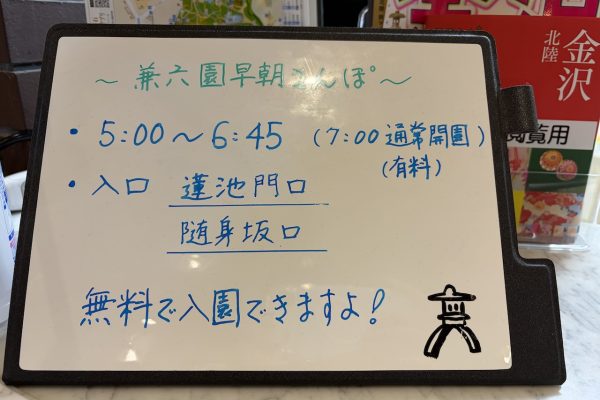 ～兼六園早朝さんぽ～
・5:00～6:45 (7:00 通常開園)
(有料)
・入口 蓮池門口
随身坂口
無料で入園できますよ!
金沢
北陸
閲覧用